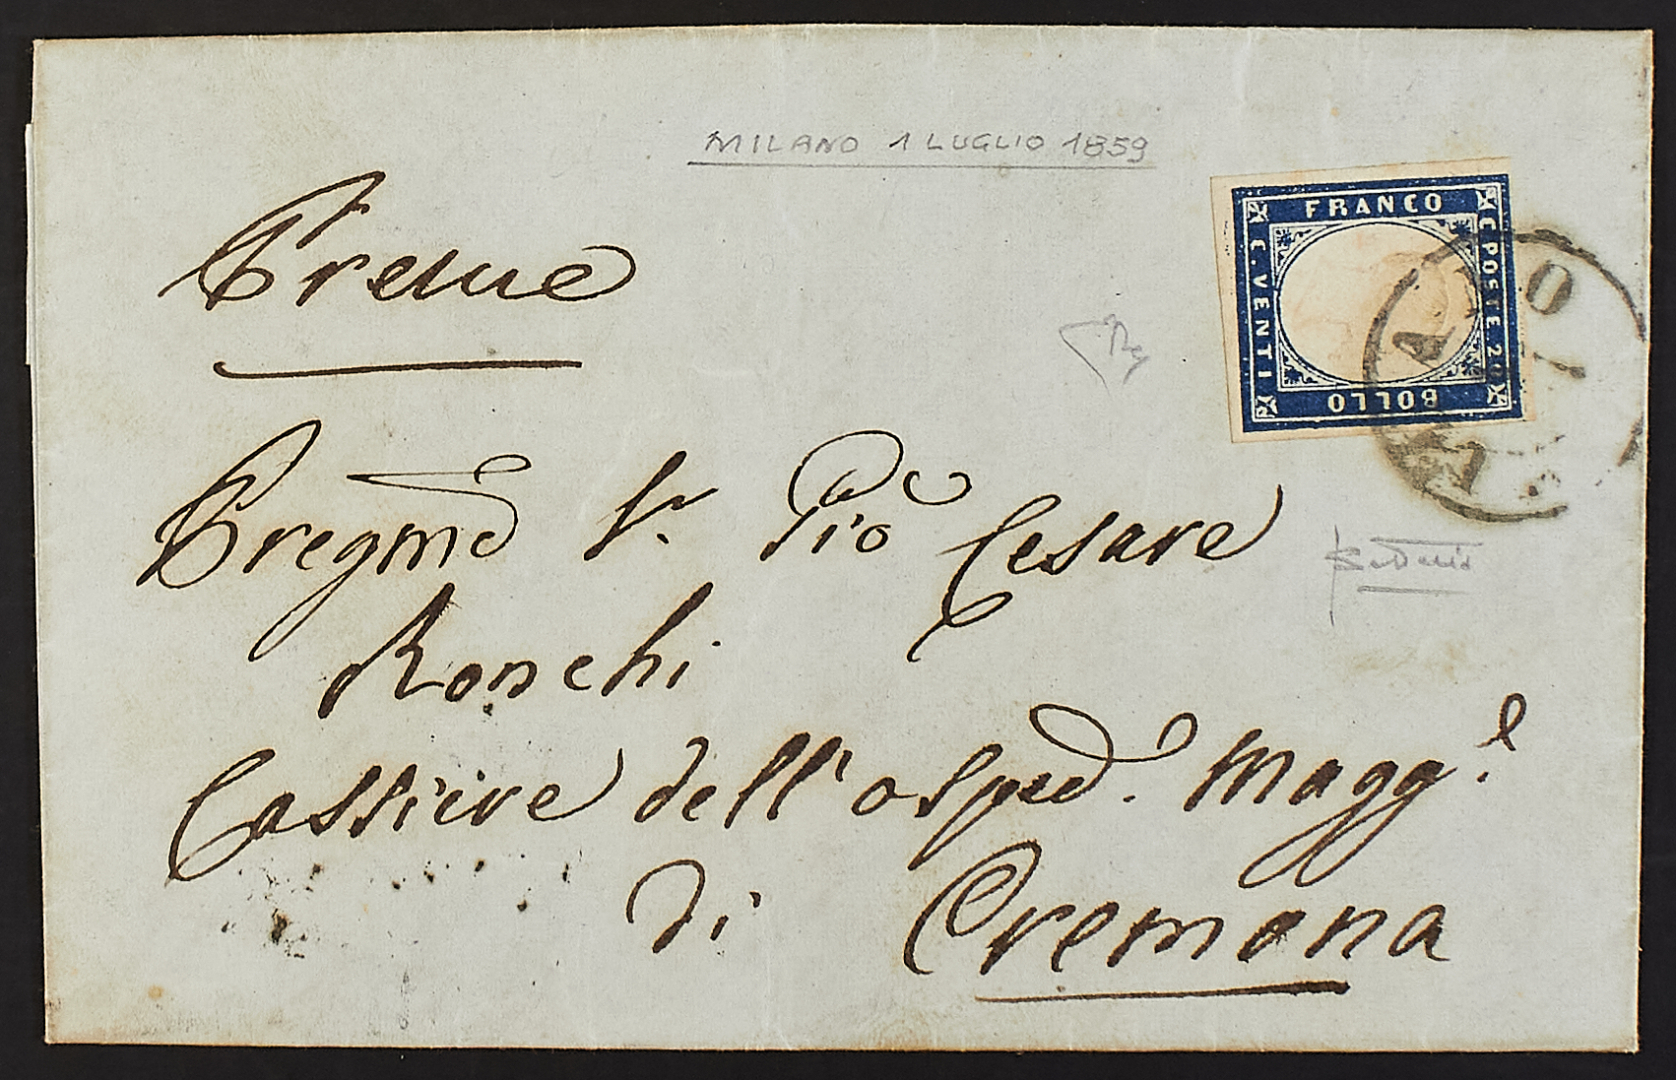 MILANO 1 LUGLIO 1859
FRANCO
C POSTE 20
BOLLO
C. VENTI
Pregmo Sr. Pio Cesare
Ronchi
Cassiere dell'osped. Magg.e
di Cremona